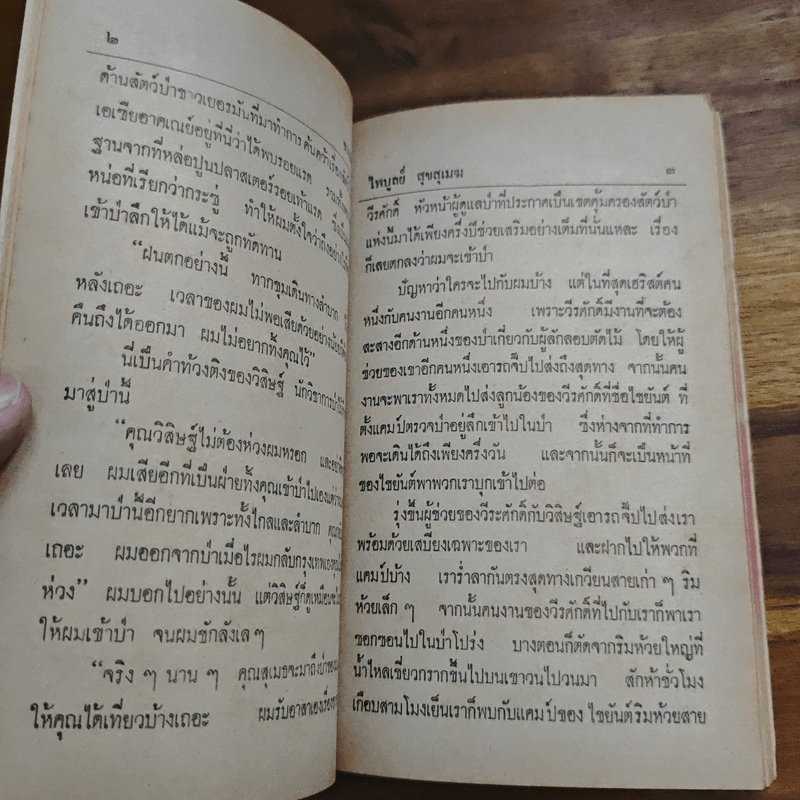 ๒
ด้านสัตว์ป่าชาวเยอรมันที่มาทำการค้นคว้าเรื่อง
เอเซียอาคเณย์อยู่ที่นี่ว่าได้พบรอยแรด
ฐานจากที่หล่อปูนปลาสเตอร์รอยเท้าแรด
หน่อที่เรียกว่ากระซู่ ทำให้ผมตั้งใจว่าถึงอย่าง
เข้าป่าลึกให้ได้แม้จะถูกทัดทาน
“ฝนตกอย่างนี้ ทากชุมเดินทางลำบาก
หลังเถอะ เวลาของผมไม่พอเสียด้วยอย่างน้อย
คืนถึงได้ออกมา ผมไม่อยากทิ้งคุณไว้”
นี่เป็นคำท้วงติงของวิสิษฐ์ นักวิชาการป่าไม้
มาสู่ป่านี้
“คุณวิสิษฐ์ไม่ต้องห่วงผมหรอก และอย่า
เลย ผมเสียอีกที่เป็นฝ่ายทิ้งคุณเข้าป่าไปเอง
เวลามาป่านี้อีกยากเพราะทั้งไกลและลำบาก
เถอะ ผมออกจากป่าเมื่อไรผมกลับกรุงเทพเอง
ห่วง” ผมบอกไปอย่างนั้น แต่วิสิษฐ์ก็ดูเหมือน
ให้ผมเข้าป่า จนผมชักลังเล ๆ
“จริง ๆ นาน ๆ คุณสุเมธจะมาถึงป่า
ให้คุณได้เที่ยวบ้างเถอะ ผมรับอาสาเองเรื่อง
ไพบูลย์ สุขสุเมฆ ๓
วีรศักดิ์ หัวหน้าผู้ดูแลป่าที่ประกาศเป็นเขตคุ้มครองสัตว์ป่า
แห่งนี้มาได้เพียงครึ่งปีช่วยเสริมอย่างเต็มที่นั่นแหละ เรื่อง
ก็เลยตกลงว่าผมจะเข้าป่า
ปัญหาว่าใครจะไปกับผมบ้าง แต่ในที่สุดเฮริสต์คน
หนึ่งกับคนงานอีกคนหนึ่ง เพราะวีรศักดิ์มีงานที่จะต้อง
สะสางอีกด้านหนึ่งของป่าเกี่ยวกับผู้ลักลอบตัดไม้ โดยให้ผู้
ช่วยของเขาอีกคนหนึ่งเอารถจี๊ปไปส่งถึงสุดทาง จากนั้นคน
งานจะพาเราทั้งหมดไปส่งลูกน้องของวีรศักดิ์ที่ชื่อไชยันต์ ที่
ตั้งแคมป์ตรวจป่าอยู่ลึกเข้าไปในป่า ซึ่งห่างจากที่ทำการ
พอจะเดินได้ถึงเพียงครึ่งวัน และจากนั้นก็จะเป็นหน้าที่
ของไชยันต์พาพวกเราบุกเข้าไปต่อ
รุ่งขึ้นผู้ช่วยของวีระศักดิ์กับวิสิษฐ์เอารถจี๊ปไปส่งเรา
พร้อมด้วยเสบียงเฉพาะของเรา และฝากไปให้พวกที่
แคมป์บ้าง เราร่ำลากันตรงสุดทางเกวียนสายเก่า ๆ ริม
ห้วยเล็ก ๆ จากนั้นคนงานของวีรศักดิ์ที่ไปกับเราก็พาเรา
ซอกซอนไปในป่าโปร่ง บางตอนก็ตัดจากริมห้วยใหญ่ที่
น้ำไหลเชี่ยวกรากขึ้นไปบนเขาวนไปวนมา สักห้าชั่วโมง
เกือบสามโมงเย็นเราก็พบกับแคมป์ของ ไชยันต์ริมห้วยสาย